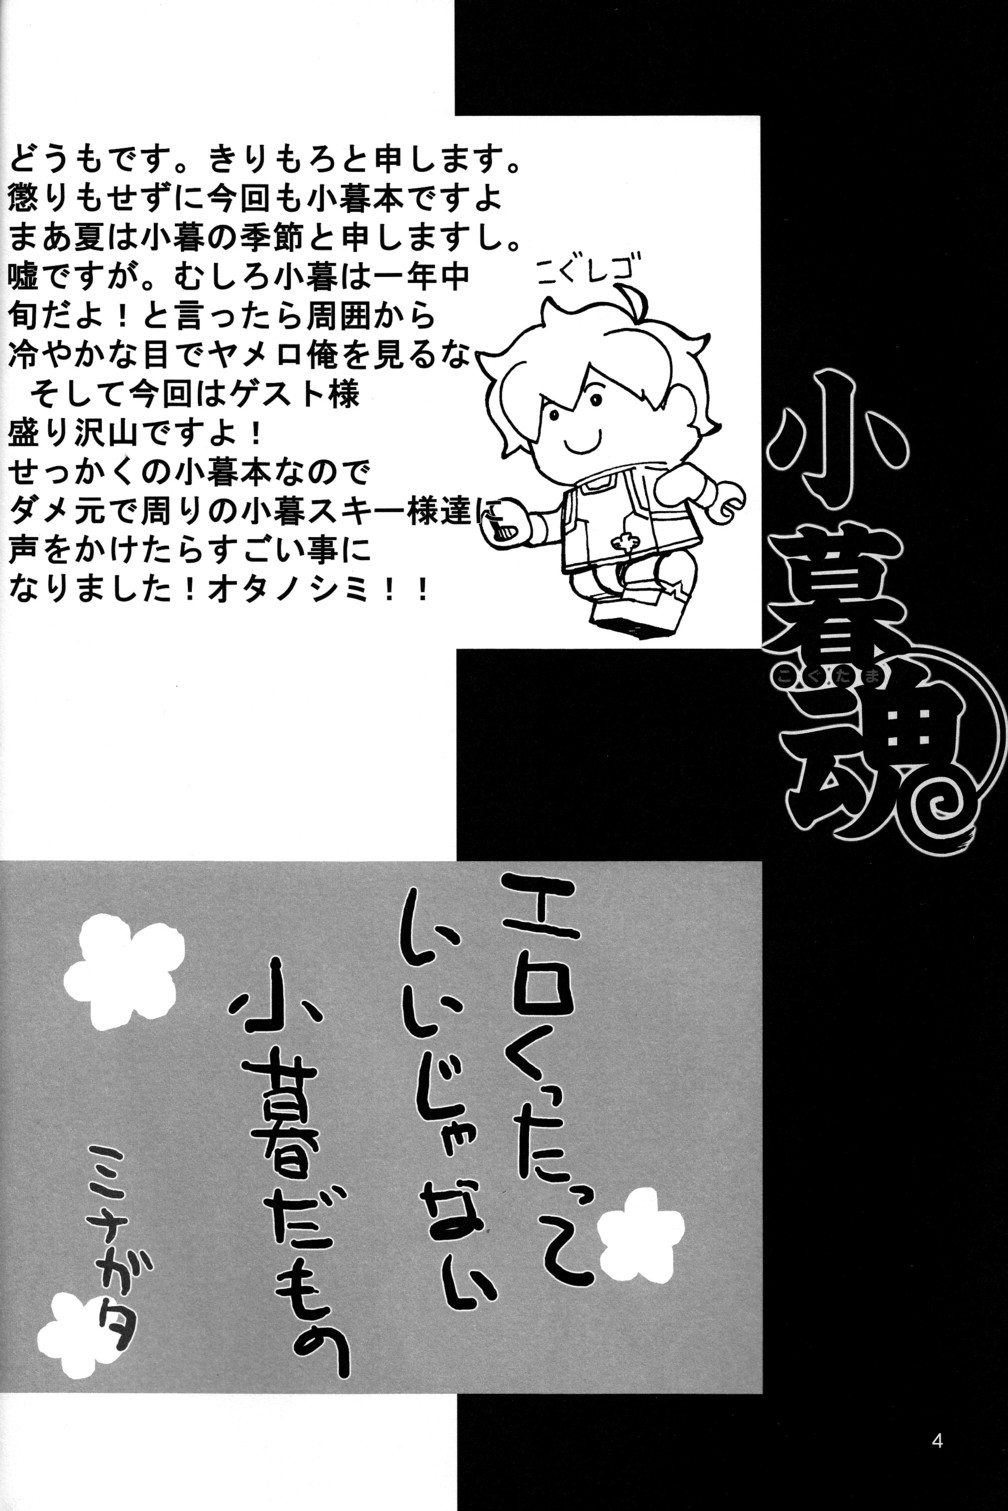 どうもです。きりもろと申します。
懲りもせずに今回も小暮本ですよ
まあ夏は小暮の季節と申しますし。
嘘ですが。むしろ小暮は一年中
旬だよ！と言ったら周囲から
冷やかな目でヤメロ俺を見るな
そして今回はゲスト様
盛り沢山ですよ！
せっかくの小暮本なので
ダメ元で周りの小暮スキー様達に
声をかけたらすごい事に
なりました！オタノシミ！！
こぐレゴ
小暮魂
こぐたま
エロくったって
いいじゃない
小暮だもの
ミナガタ
4